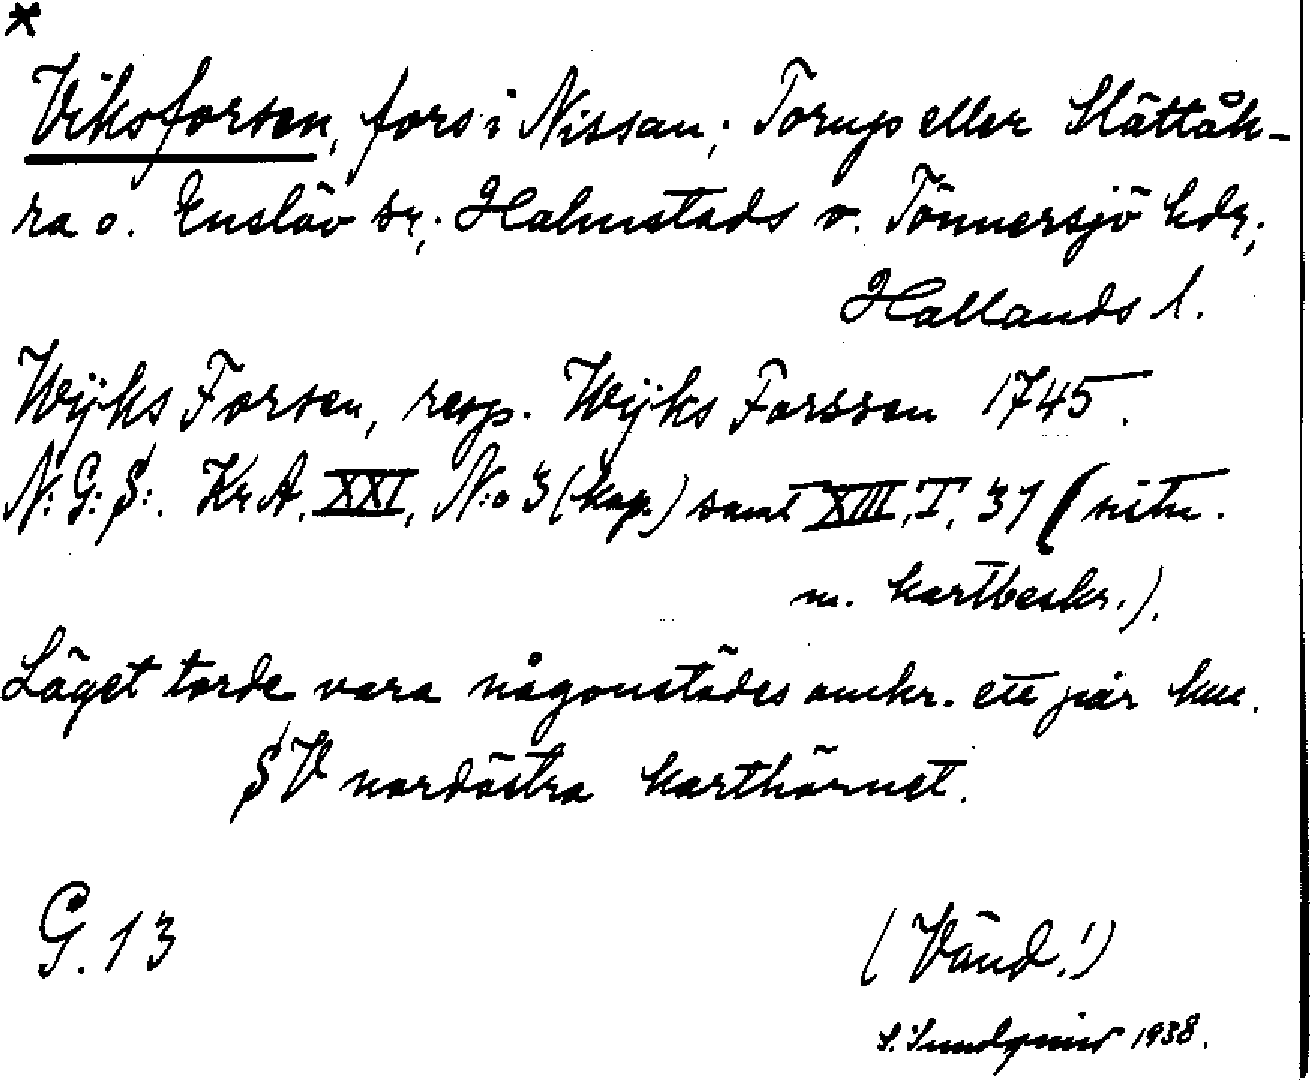 *
Viksforsen, fors i Nissan; Torup eller Slättåk-
ra o. Enslöv sr; Halmstads o. Tönnersjö hdr;
Hallands l.
Wijks Forsen, resp. Wijks Forssen 1745.
N: G: S:. Kr A. XXI, N:o 3 (kop.) samt XIII, I, 31 (situ.
m. kartbeskr.).
Läget torde vara någonstädes omkr. ett par km.
SV nordöstra karthörnet.
G. 13
(Vänd!)
S. Sundqvist 1938.